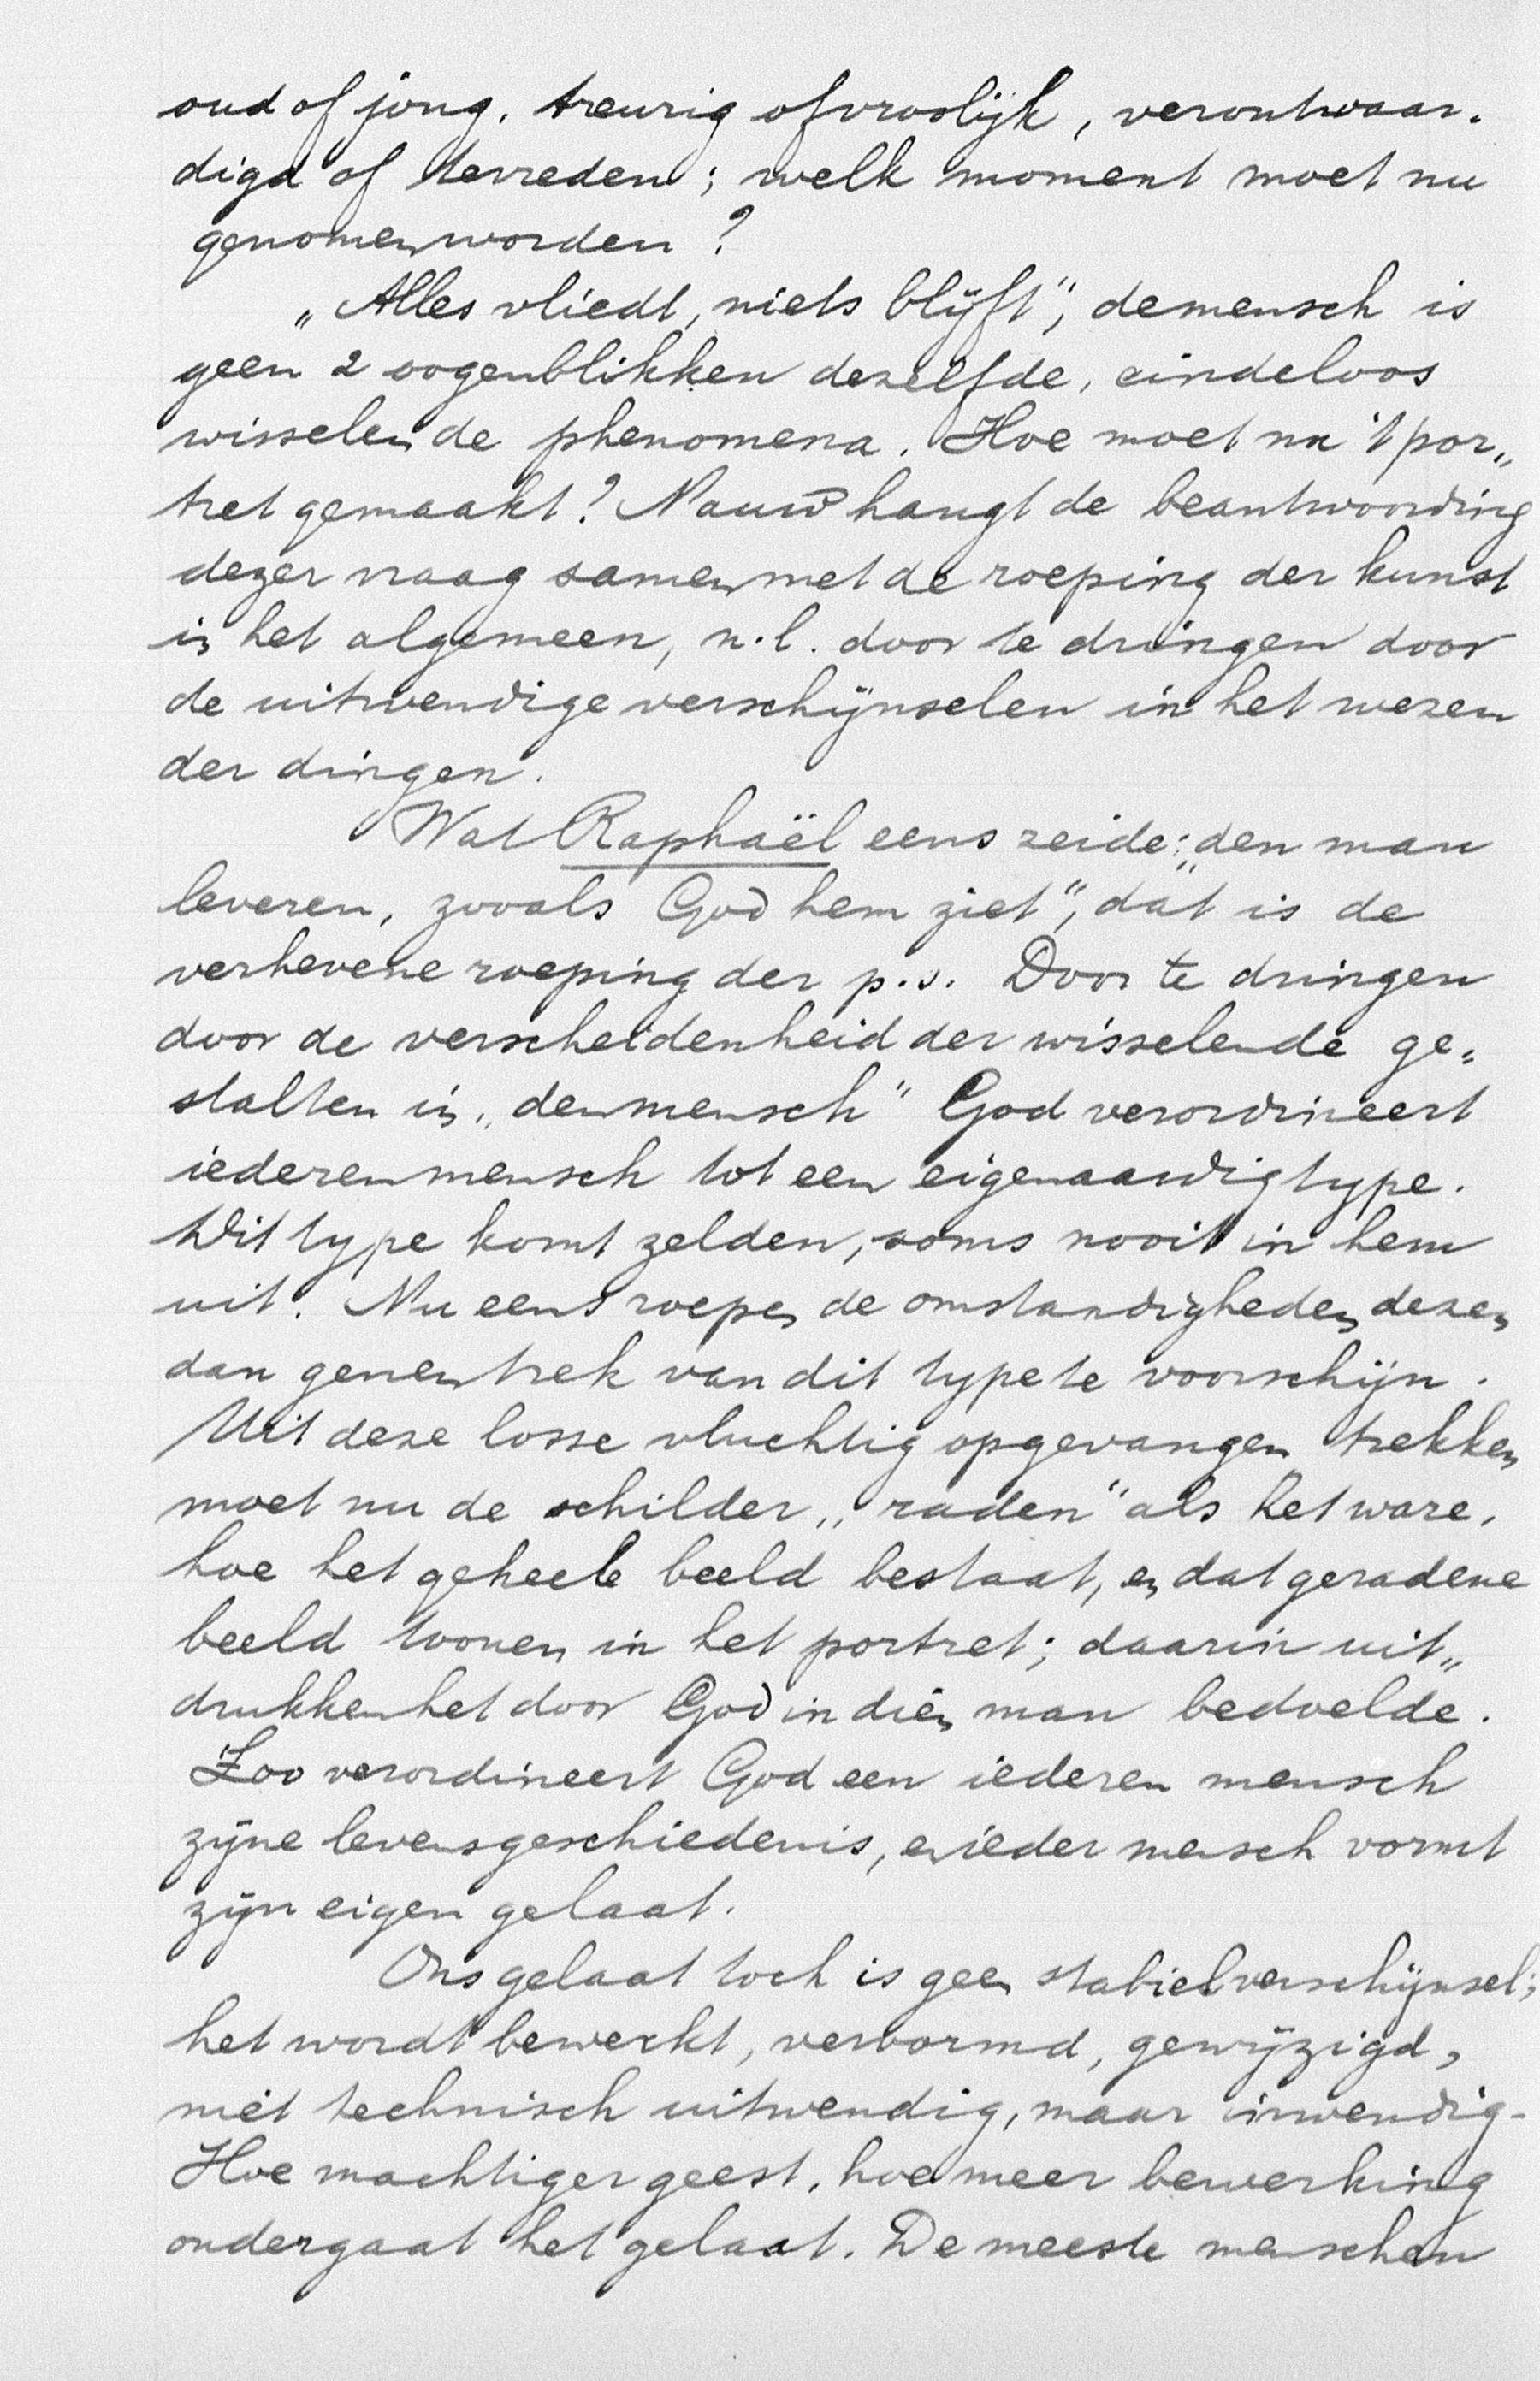 oud of jong, treurig of vroolijk, verontwaar-
digd of tevreden; welk moment moet nu
genomen worden?
„Alles vliedt, niets blijft”, de mensch is
geen 2 oogenblikken dezelfde, eindeloos
wisselende phenomena. Hoe moet nu 't por„
tret gemaakt? Nauw hangt de beantwoording
dezer vraag samen met de roeping der kunst
in het algemeen, n.l. door te dringen door
de uitwendige verschijnselen in het wezen
der dingen.
Wat Raphaël eens zeide: „den man
leveren, zooals God hem ziet”, dát is de
verhevene roeping der p.s. Door te dringen
door de verscheidenheid der wisselende ge„
stalten in „den mensch” God verordineert
iederen mensch tot een eigenaardig type.
Dit type komt zelden, soms nooit in hem
uit. Nu eens roepen de omstandigheden dezen
dan genen trek van dit type te voorschijn.
Uit deze losse vluchtig opgevangen trekken
moet nu de schilder „raden” als het ware,
hoe het geheele beeld bestaat, en dat geradene
beeld toonen in het portret; daarin uit„
drukken het door God in dién man bedoelde.
Zoo verordineert God een iederen mensch
zijne levensgeschiedenis, en ieder mensch vormt
zijn eigen gelaat.
Ons gelaat toch is geen stabiel verschijnsel;
het wordt bewerkt, vervormd, gewijzigd,
niét technisch uitwendig, maar inwendig-
Hoe machtiger geest, hoe meer bewerking
ondergaat het gelaat. De meeste menschen